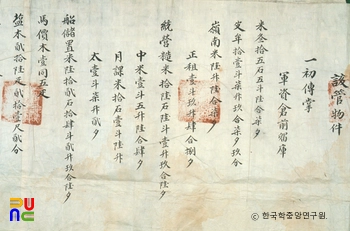 該管物件
一初傳掌
軍資倉前留庫
米叄拾五石五斗陸拾柒夕
拾壹斗柒升玖合柒夕玖分
嶺南米陸拾
正租壹斗玖升肆合捌夕
統營糙米拾陸石陸斗壹升玖合陸夕
中米壹斗五升陸合肆夕
月課米拾石壹斗陸升
太壹斗柒升貳夕
船儲置米陸拾貳石拾肆斗貳升玖合陸夕
馬價木壹同五疋
木貳拾陸疋貳拾壹尺貳分
ⓒ 한국학중앙연구원